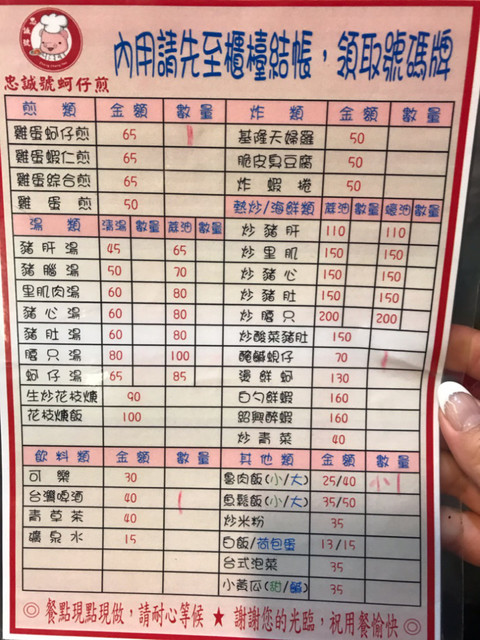 內用請先至櫃檯結帳，領取號碼牌
忠誠號蚵仔煎
煎類 金額 數量 炸類 金額 數量
雞蛋蚵仔煎 65 1 基隆天婦羅 50
雞蛋蝦仁煎 65 脆皮臭豆腐 50
雞蛋綜合煎 65 炸蝦捲 50
雞蛋煎 50 熱炒/海鮮類 蔴油 數量 蠔油 數量
湯類 清湯 數量 蔴油 數量 炒豬肝 110 110
豬肝湯 45 65 炒里肌 150 150
豬腦湯 50 70 炒豬心 150 150
里肌肉湯 60 80 炒豬肚 150 150
豬心湯 60 80 炒腰只 200 200
豬肚湯 60 80 炒酸菜豬肚 150
腰只湯 80 100 醃鹹蜆仔 70 1
蚵仔湯 65 85 燙鮮蚵 130
生炒花枝焿 90 白勺鮮蝦 160
花枝焿飯 100 紹興醉蝦 160
炒青菜 40
飲料類 金額 數量 其他類 金額 數量
可樂 30 魯肉飯(小/大) 25/40 小1
台灣啤酒 40 1 魚鬆飯(小/大) 35/50
青草茶 40 炒米粉 35
礦泉水 15 白飯/荷包蛋 13/15
台式泡菜 35
小黃瓜(甜/鹹) 35
◎餐點現點現做，請耐心等候 ★ 謝謝您的光臨，祝用餐愉快◎